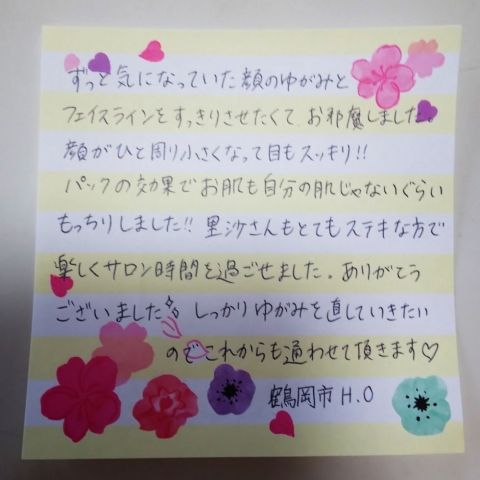 ずっと気になっていた顔のゆがみと
フェイスラインをすっきりさせたくて お邪魔しました。
顔がひと周り小さくなって目もスッキリ!!
パックの効果でお肌も自分の肌じゃないぐらい
もっちりしました!! 里沙さんもとてもステキな方で
楽しくサロン時間を過ごせました。ありがとう
ございました✨ しっかりゆがみを直していきたい
のでこれからも通わせて頂きます♡
鶴岡市 H.O